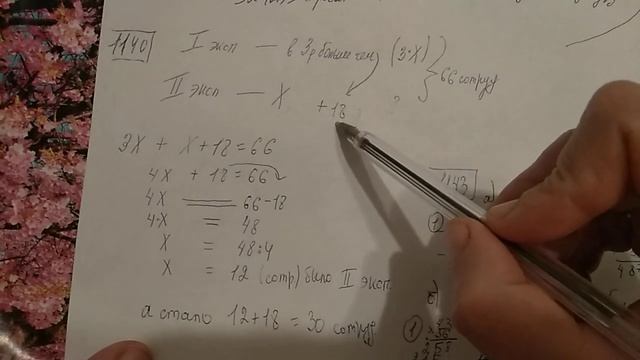 1140
I эксп — в 3р больше чем (3·X)
66 сотруд
II эксп — X
+18
?
3X + X + 18 = 66
4X + 18 = 66
4X = 66-18
4·X = 48
X = 48:4
X = 12 (сотр) было II эксп.
а стало 12+18 = 30 сотруд.
1143 а)
①
б)
①